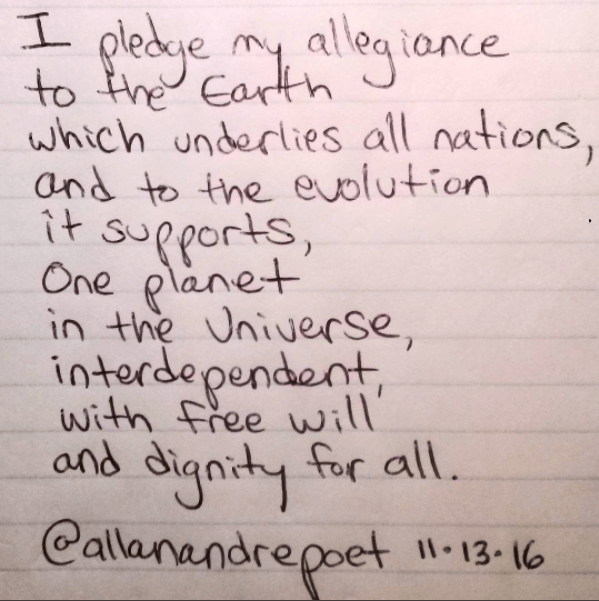 I pledge my allegiance
to the Earth
which underlies all nations,
and to the evolution
it supports,
One planet
in the Universe,
interdependent,
with free will
and dignity for all.
@allanandrepoet 11.13.16